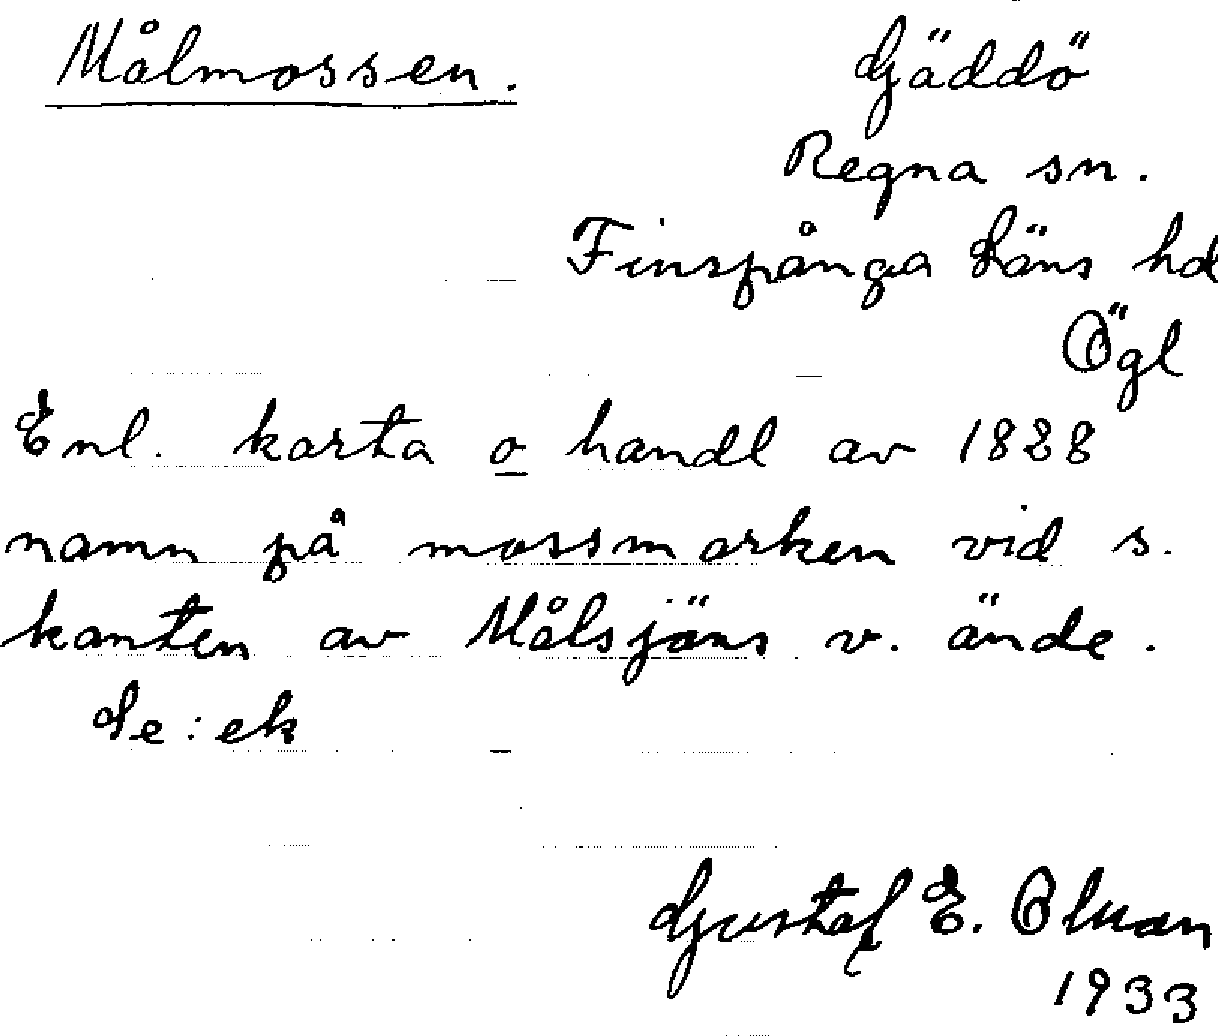 Målmossen. Gäddö
Regna sn.
Finspånga läns hd
Ögl
Enl. karta o handl av 1828
namn på mossmarken vid s.
kanten av Målsjöns v. ände.
Se: ek
Gustaf E. Olman
1933